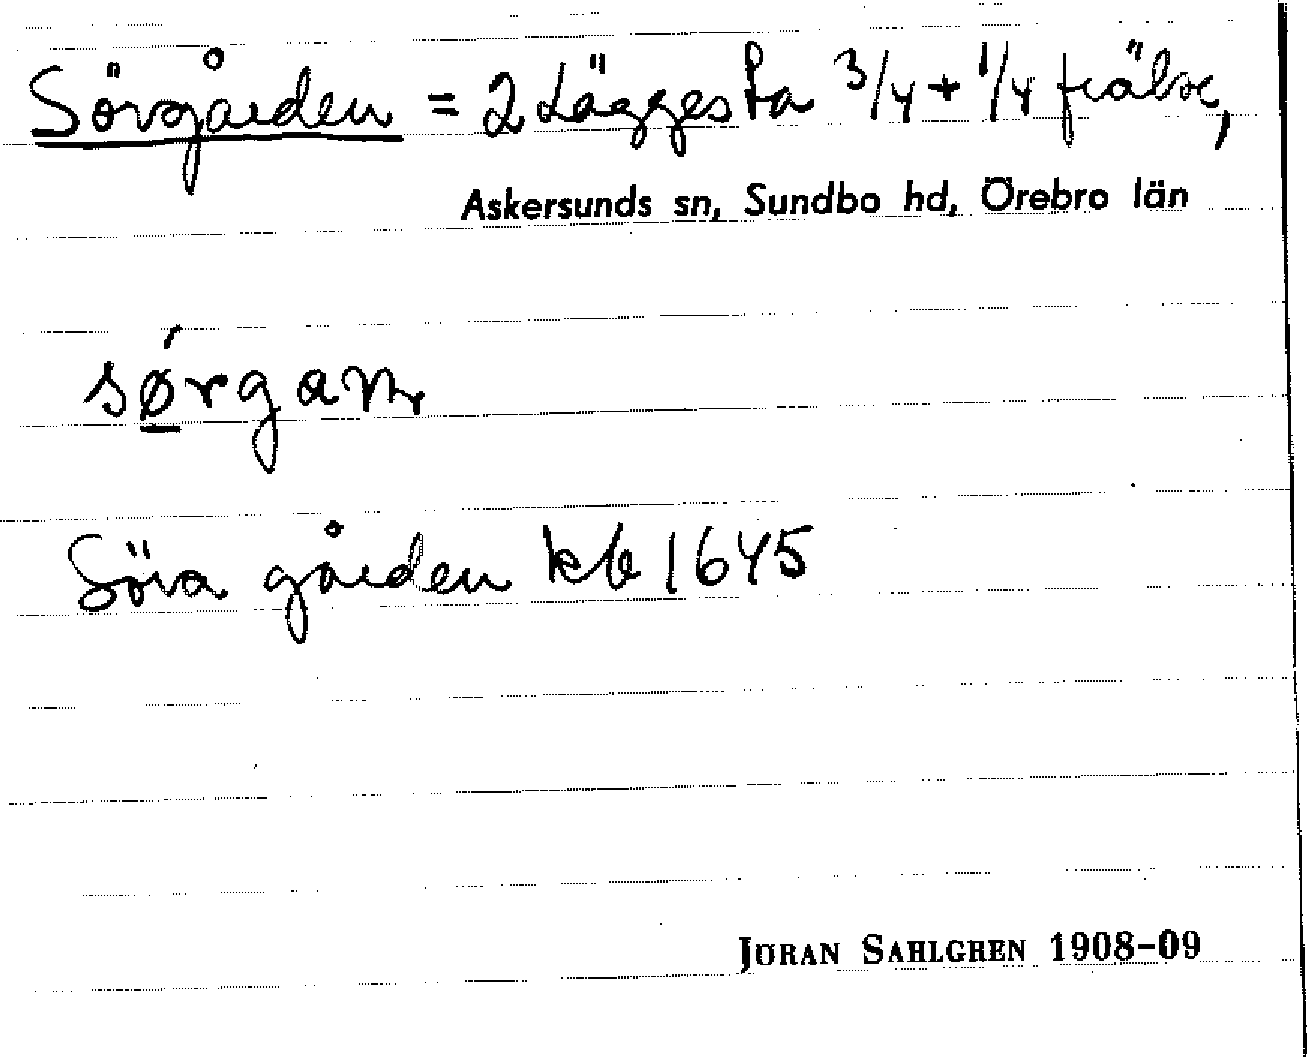 Sörgården = 2 Läggesta 3/4 + 1/4 frälse,
Askersunds sn, Sundbo hd, Örebro län
sǿ̲rgaɳ
Söra gården kb 1645
JÖRAN SAHLGREN 1908–09